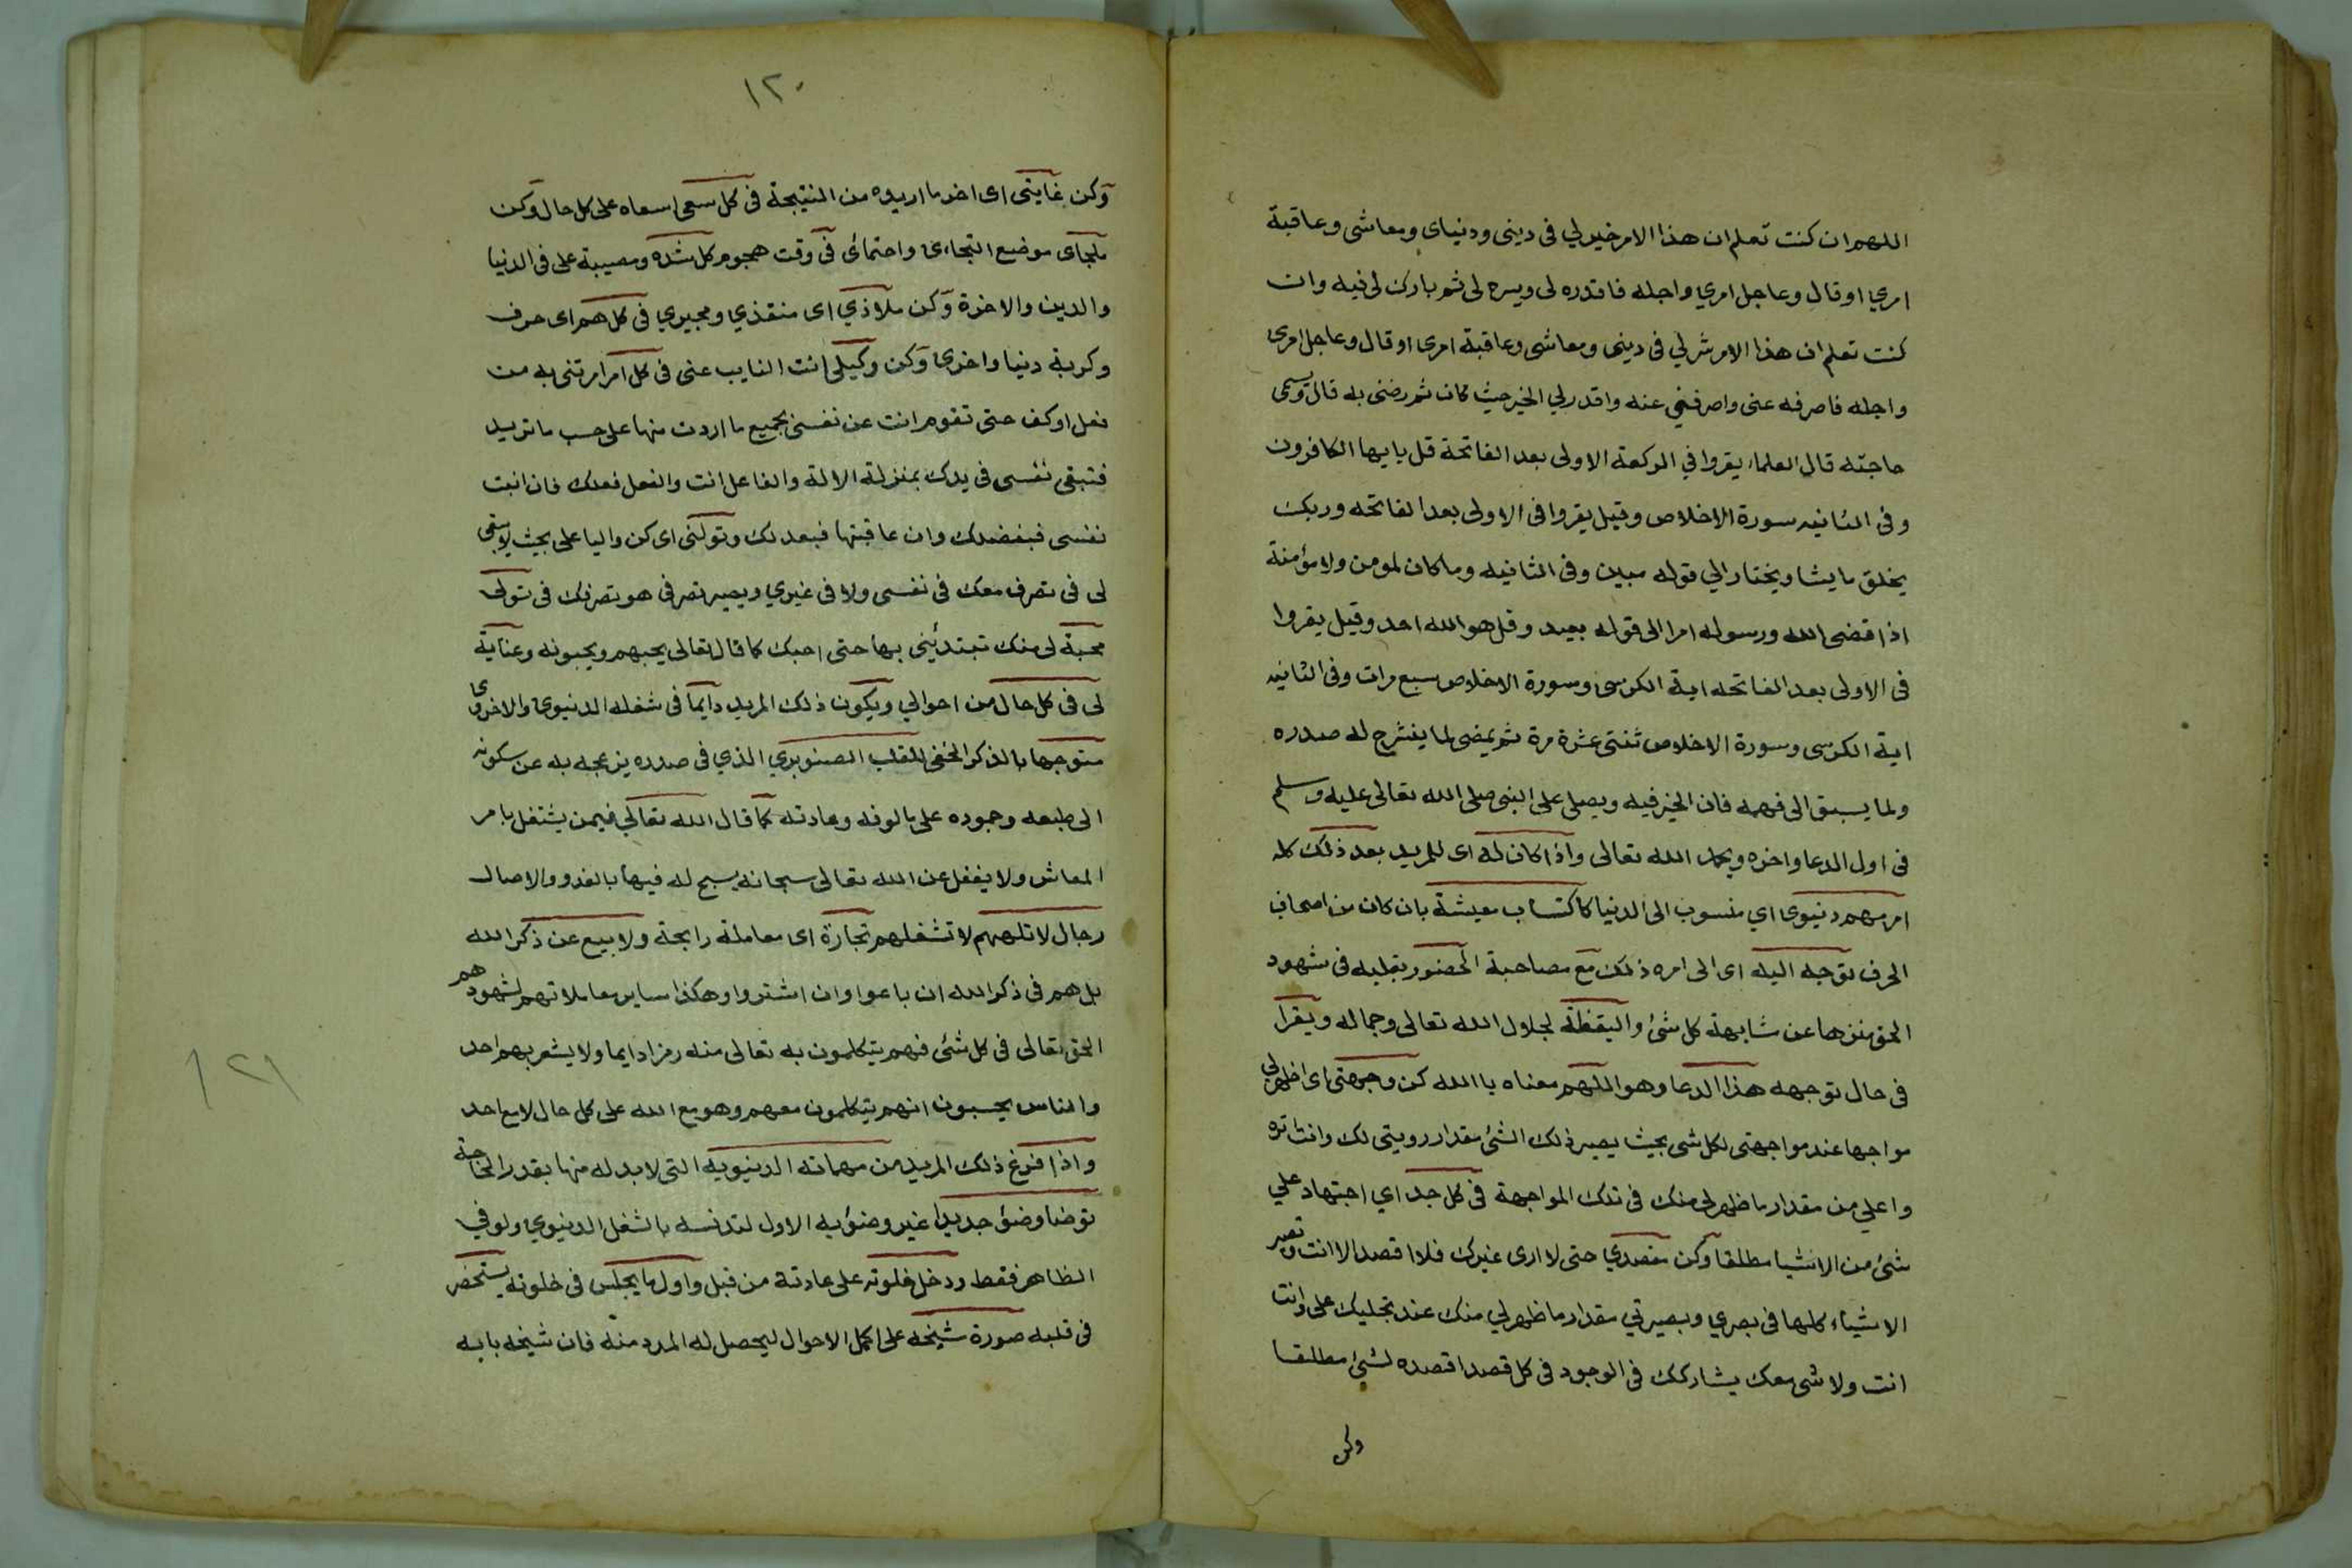 اللهم ان كنت تعلم ان هذا الامر خير لي في ديني ودنياى ومعاشى وعاقبة
امري او قال وعاجل امري واجله فاقدره لى ويسره لى ثم بارك لى فيه وان
كنت تعلم ان هذا الامر شر لي في دينى ومعاشى وعاقبة امرى او قال وعاجل امرى
واجله فاصرفه عنى واصرفني عنه واقدر لي الخير حيث كان ثم رضنى به قال ويسمى
حاجته قال العلماء يقروا في الركعة الاولى بعد الفاتحة قل يايها الكافرون
وفى الثانيه سورة الاخلاص وقيل يقروا فى الاولى بعد الفاتحه وربك
يخلق ما يشا ويختار الي قوله مبين وفى الثانيه وما كان لمومن ولا مؤمنة
اذا قضى الله ورسوله امرا الى قوله بعيد وقل هو الله احد وقيل يقروا
فى الاولى بعد الفاتحه اية الكرسى وسورة الاخلاص سبع مرات وفى الثانيه
اية الكرسى وسورة الاخلاص ثنتى عشرة مرة ثم يمضى لما ينشرح له صدره
ولما يسبق الى فهمه فان الخير فيه ويصلى على النبى صلى الله تعالى عليه وسلم
فى اول الدعا واخره ويحمد الله تعالى واذا كان له اى للمريد بعد ذلك كله
امر مهم دنيوى اي منسوب الى الدنيا كاكتساب معيشة بان كان من اصحاب
الحرف توجه اليه اى الى امره ذلك مع مصاحبة الحضور بقلبه فى شهود
الحق منزها عن مشابهة كل شئ واليقظة لجلال الله تعالى وجماله ويقرا
فى حال توجهه هذا الدعا وهو اللهم معناه يا الله كن وجهتى اى اظهر لي
مواجها عند مواجهتى لكل شى بحيث يصير ذلك الشئ مقدار رويتى لك وانت تره
واعلي من مقدار ما ظهر لى منك فى تلك المواجهة فى كل جد اي اجتهاد علي
شئ من الاشيا مطلقا وكن مقصدي حتى لا ارى غيرك فلا اقصد الا انت وتصير
الاشياء كلها فى بصري وبصيرتي مقدار ما ظهر لي منك عند تجليك على وانت
انت ولا شى معك يشاركك فى الوجود فى كل قصد اقصده لشئ مطلقا
وكن
١٢٠
وكن غايتى اى اخر ما اريده من النتيجة فى كل سعى اسعاه على كل حال وكن
ملجاى موضع التجاءى واحتمائى فى وقت هجوم كل شده ومصيبة على فى الدنيا
والدين والاخرة وكن ملاذي اى منقذي ومجيري فى كل هم اى حزن
وكربة دنيا واخرى وكن وكيلى انت النايب عنى فى كل امر امرتنى به من
فعل او كف حتى تقوم انت عن نفسى بجميع ما اردت منها على حسب ما تريد
فتبقى نفسى فى يدك بمنزلة الالة والفاعل انت والفعل فعلك فان اثبت
نفسى فبفضلك وان عاقبتها فبعدلك وتولنى اى كن واليا على بحيث لا يبقى
لى فى تصرف معك فى نفسى ولا فى غيري ويصير تصرفى هو تصرفك فى تولى
محبة لى منك تبتدئنى بها حتى احبك كما قال تعالى يحبهم ويحبونه وعناية
لى فى كل حال من احوالي ويكون ذلك المريد دايما فى شغله الدنيوى والاخروى
متوجها بالذكر الخفى للقلب الصنوبري الذي فى صدره يزعجه به عن سكونه
الى طبعه وجموده على مالوفه وعادته كما قال الله تعالي فيمن يشتغل بامر
المعاش ولا يغفل عن الله تعالى سبحانه يسبح له فيها بالغدو والاصال
رجال لا تلهيهم لا تشغلهم تجارة اى معاملة رابحة ولا بيع عن ذكر الله
بل هم فى ذكر الله ان باعوا وان اشتروا وهكذا ساير معاملاتهم لشهودهم
الحق تعالى فى كل شئ فهم يتكلمون به تعالى منه رمزا دايما ولا يشعر بهم احد
والناس يحسبون انهم يتكلمون معهم وهو مع الله على كل حال لا مع احد
واذا فرغ ذلك المريد من مهماته الدنيويه التى لا بد له منها بقدر الحاجة
توضا وضؤ جديدا غير وضؤيه الاول لتدنسه بالشغل الدنيوي ولو في
الظاهر فقط ودخل خلوته على عادتة من قبل واول ما يجلس فى خلوته يستحضر
فى قلبه صورة شيخه على اكمل الاحوال ليحصل له المدد منه فان شيخه بابه
١٢١